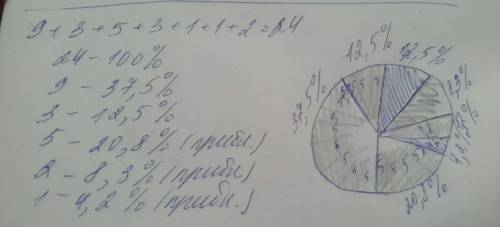 9 + 3 + 5 + 3 + 1 + 1 + 2 = 24
24 - 100%
9 - 37,5%
3 - 12,5%
5 - 20,8% (прибл.)
2 - 8,3% (прибл.)
1 - 4,2% (прибл.)
12,5%
12,5%
37,5%
8,3%
20,8%